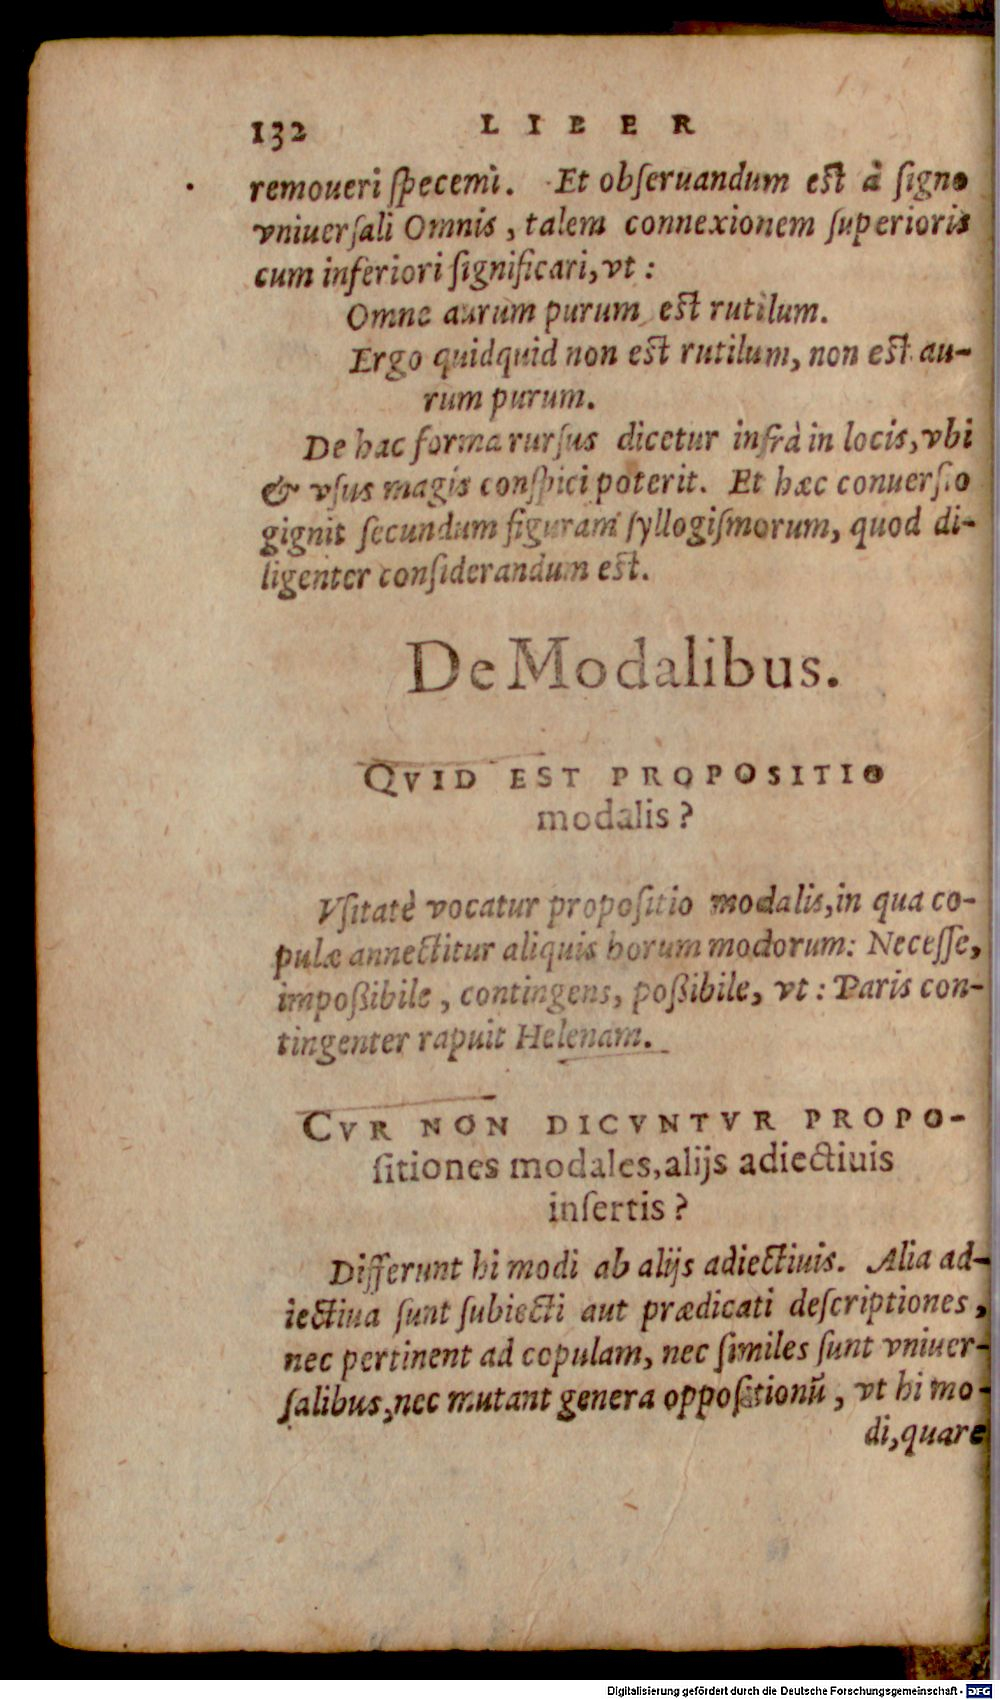 132 LIBER
remoueri specemì. Et obseruandum est à signo
vniuersali Omnis, talem connexionem superioris
cum inferiori significari, vt:
Omne aurum purum est rutilum.
Ergo quidquid non est rutilum, non est au-
rum purum.
De hac forma rursus dicetur infrà in locis, vbi
& vsus magis conspici poterit. Et hæc conuersio
gignit secundum figuram syllogismorum, quod di-
ligenter considerandum est.
De Modalibus.
QVID EST PROPOSITIO
modalis?
Vsitatè vocatur propositio modalis, in qua co-
pulæ annectitur aliquis horum modorum: Necesse,
impoßibile, contingens, poßibile, vt: Paris con-
tingenter rapuit Helenam.
CVR NON DICVNTVR PROPO-
sitiones modales, alijs adiectiuis
insertis?
Differunt hi modi ab alijs adiectiuis. Alia ad-
iectiua sunt subiecti aut prædicati descriptiones,
nec pertinent ad copulam, nec similes sunt vniuer-
salibus, nec mutant genera oppositionū, vt hi mo-
di, quare
Digitalisierung gefördert durch die Deutsche Forschungsgemeinschaft - DFG